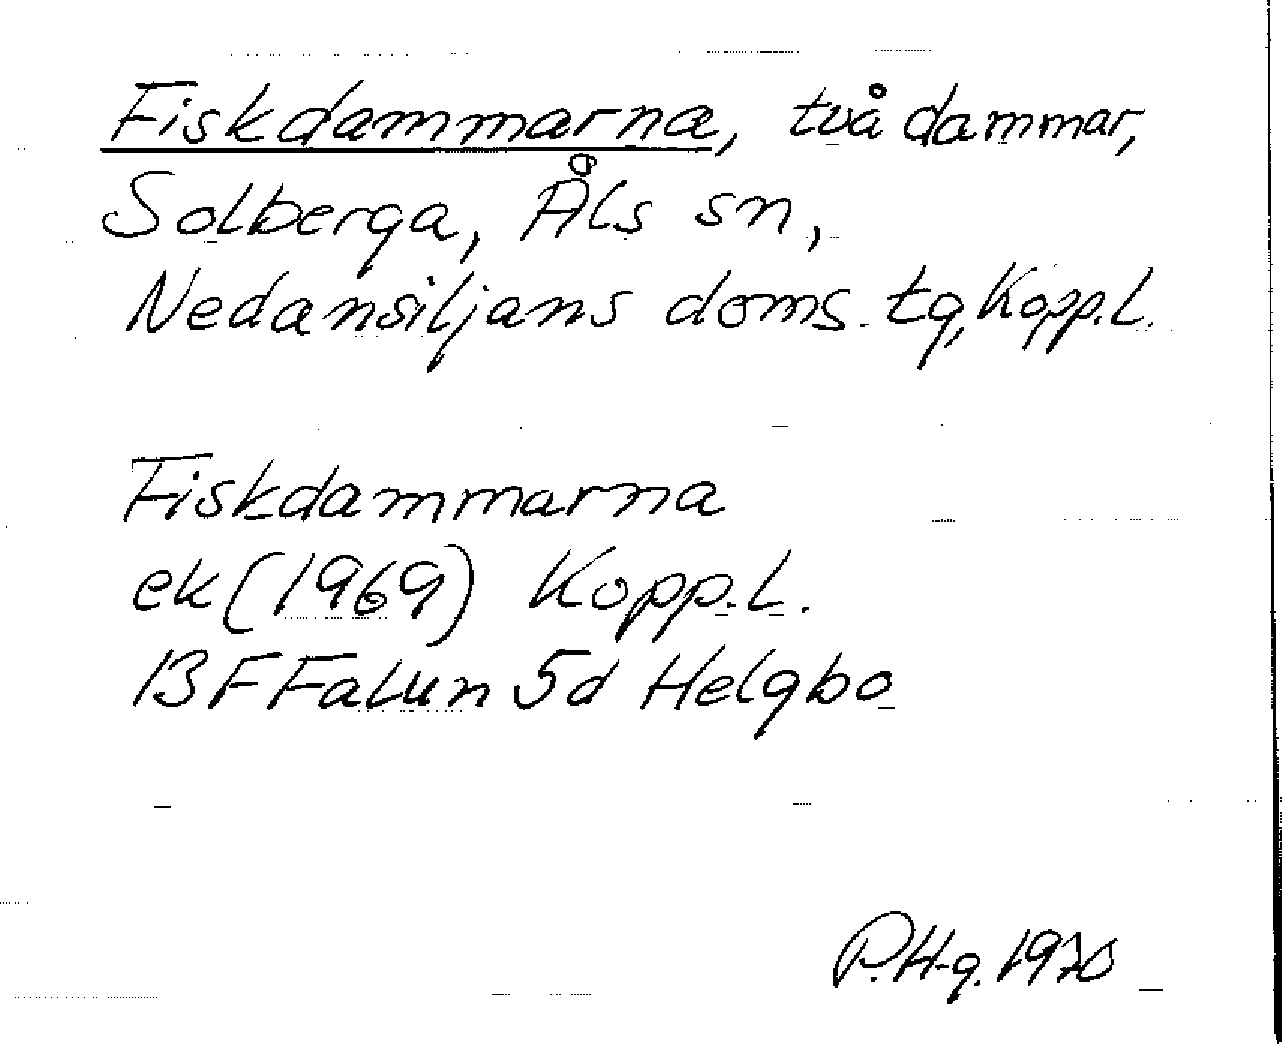 Fiskdammarna, två dammar,
Solberga, Åls sn,
Nedansiljans doms. tg, Kopp.l.
Fiskdammarna
ek (1969) Kopp.l.
13F Falun 5d Helgbo
P.H-g. 1970